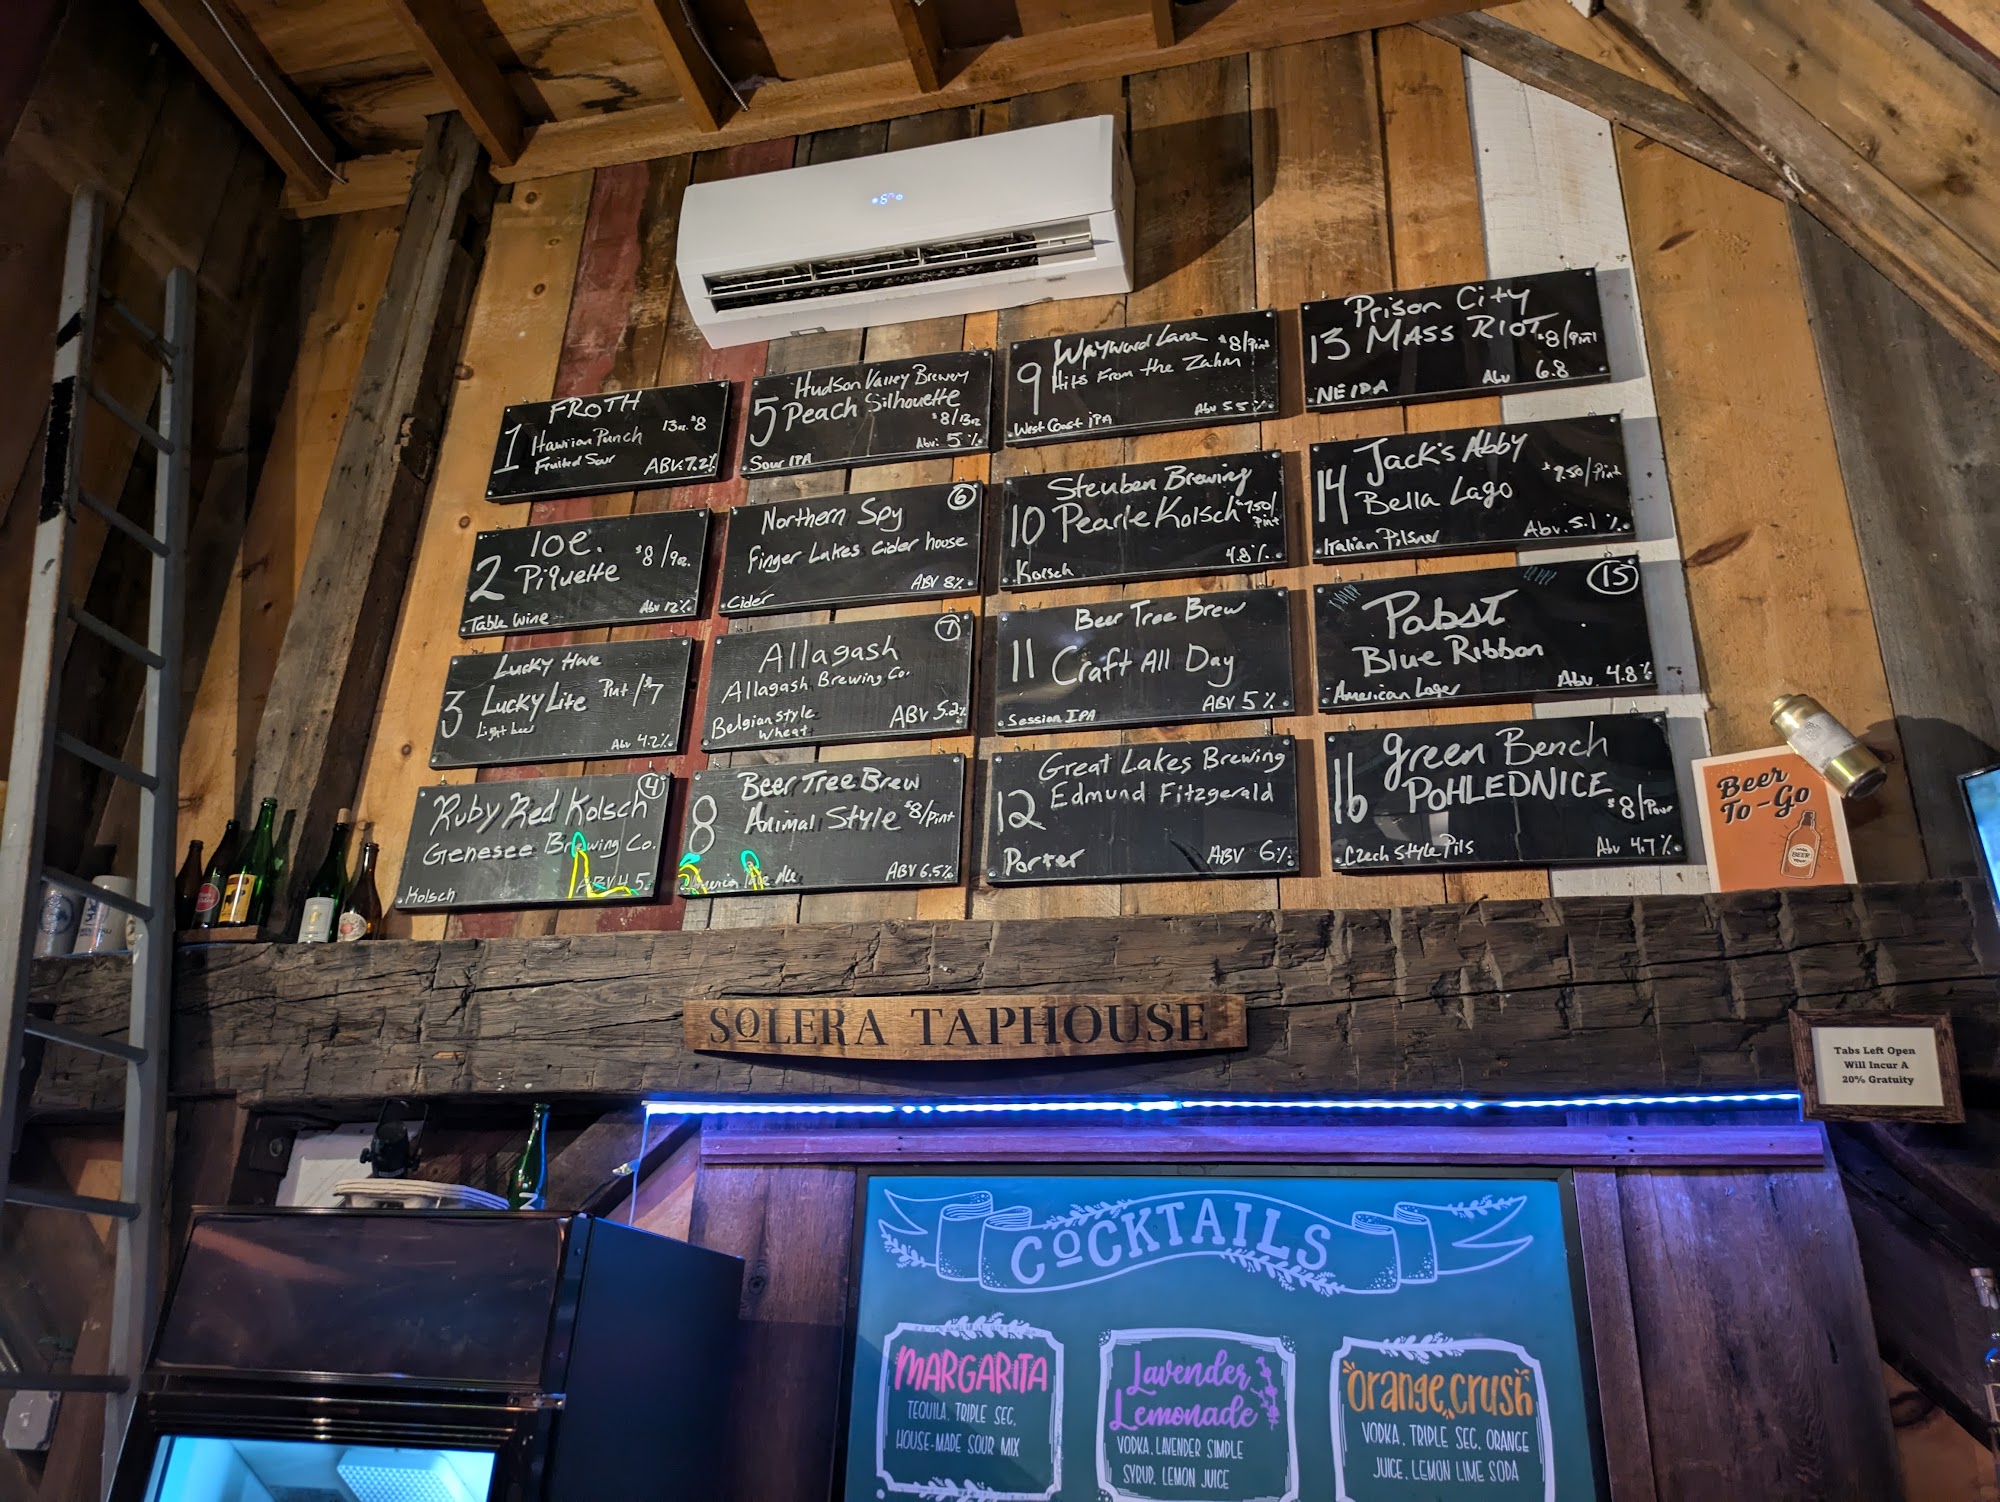 1
FROTH
Hawiian Punch 13oz. $8
Fruited Sour
ABV: 7.2%
2
IOE.
Piquette $8/9oz.
Table Wine
Abv 12%
3
Lucky Hare
Lucky Lite Pint/$7
Light beer
Abv 4.2%
4
Ruby Red Kolsch
Genesee Brewing Co.
Kolsch
ABV 4.5
5
Hudson Valley Brewery
Peach Silhouette
$8/13oz
Sour IPA
Abv: 5%
6
Northern Spy
Finger Lakes Cider house
Cider
ABV 8%
7
Allagash
Allagash Brewing Co.
Belgian style
Wheat
ABV 5.2%
8
Beer Tree Brew
Animal Style $8/pint
American Pale Ale
ABV 6.5%
9
Wayward Lane $8/pint
Hits From the Zahm
West Coast iPA
Abv 5.5%
10
Steuben Brewing
Pearle Kolsch $7.50/
Pint
Kolsch
4.8%
11
Beer Tree Brew
Craft All Day
Session IPA
ABV 5%
12
Great Lakes Brewing
Edmund Fitzgerald
Porter
ABV 6%
13
Prison City
MASS RIOT $8/Pint
NEIPA
Abv 6.8
14
Jack's Abby
Bella Lago
Italian Pilsner
Abv. 5.1%
15
Pabst
Blue Ribbon
American Lager
Abv. 4.8%
16
Green Bench
POHLEDNICE
$8/Pour
Czech Style Pils
Abv 4.7%
Beer
To-Go
BEER
SOLERA TAPHOUSE
Tabs Left Open
Will Incur A
20% Gratuity
COCKTAILS
MARGARITA
TEQUILA, TRIPLE SEC,
HOUSE-MADE SOUR MIX
Lavender
Lemonade
VODKA, LAVENDER SIMPLE
SYRUP, LEMON JUICE
Orange Crush
VODKA, TRIPLE SEC, ORANGE
JUICE, LEMON LIME SODA